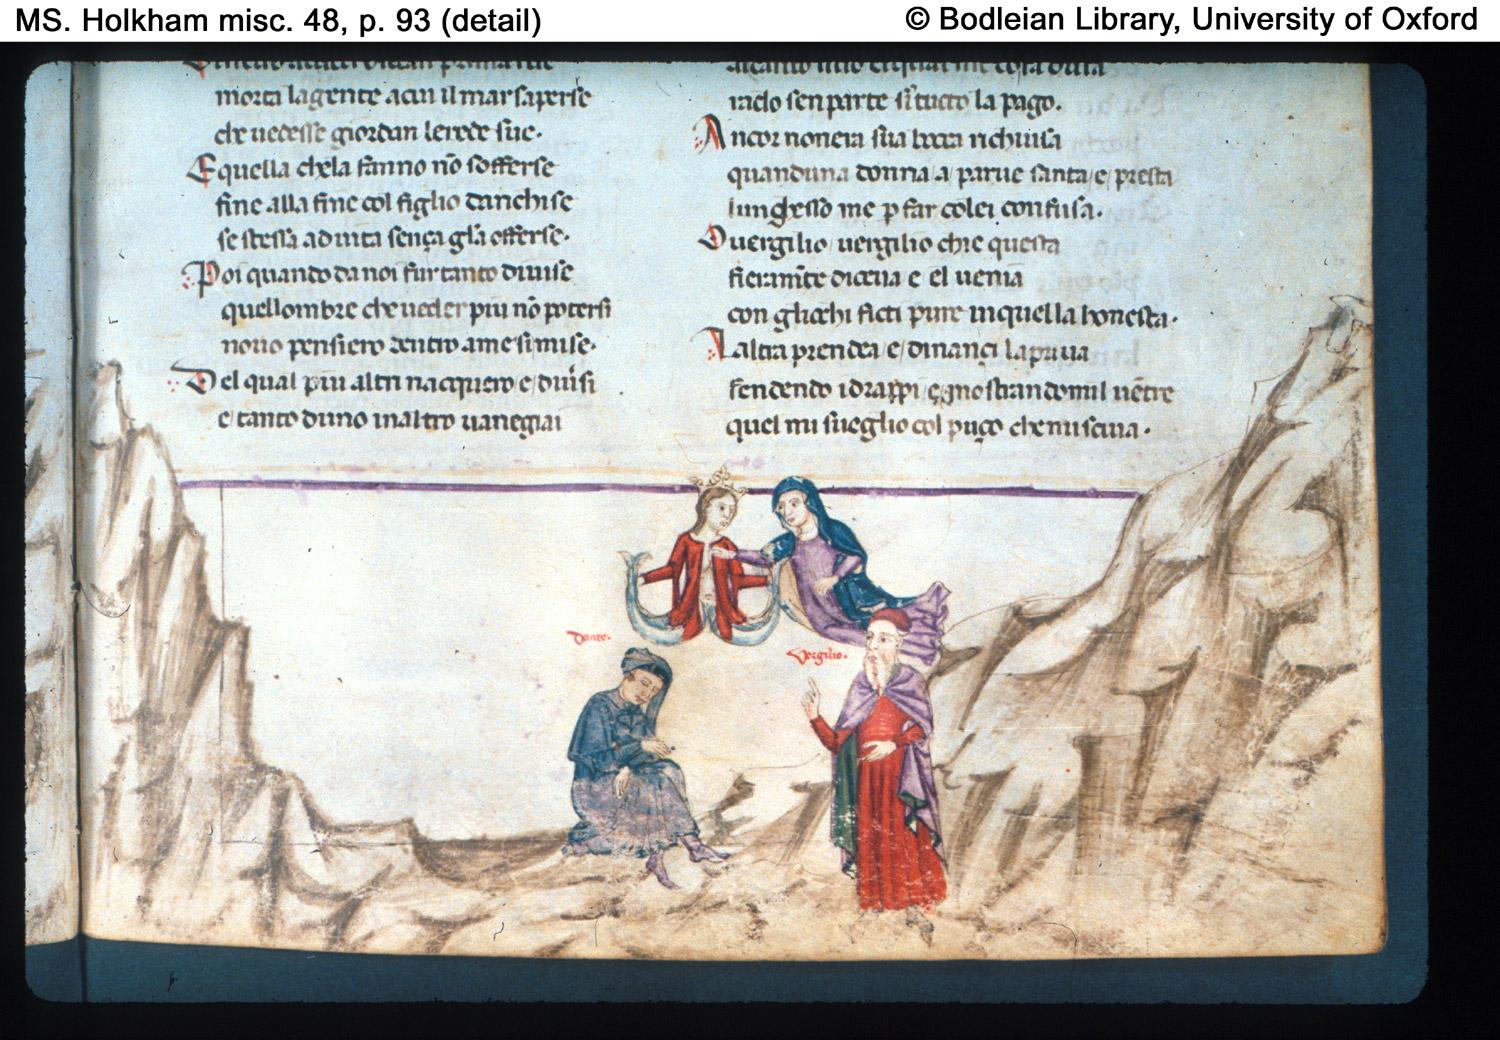 MS. Holkham misc. 48, p. 93 (detail)
© Bodleian Library, University of Oxford
morta lagente acui il mar saperse
che uedesse giordan lerede sue.
Equella chela fanno nō sofferse
fine alla fine col figlio danchise
se stessa aduita sença gl'a offerse.
Poi quando da noi fur tanto diuise
quellombre che ueder piu nō potersi
nouo pensiero dentro ame si mise.
Del qual piu altri nacquero e diu'si
e tanto duno inaltro uanegiai
uiclo sen parte si tucto la pago.
Ancor non era sua bocca richiusa
quanduna donna a parue santa e presta
lunghesso me p far colei confusa.
O uergilio uergilio chi e questa
fieram̄te diceua e el uenia
con gliochi fitti pure in quella honesta.
Laltra prendea e dinançi lapriua
fendendo i drappi e mostrandomil uētre
quel mi sueglio col puço che nusciua.
Dante.
Vergilio.